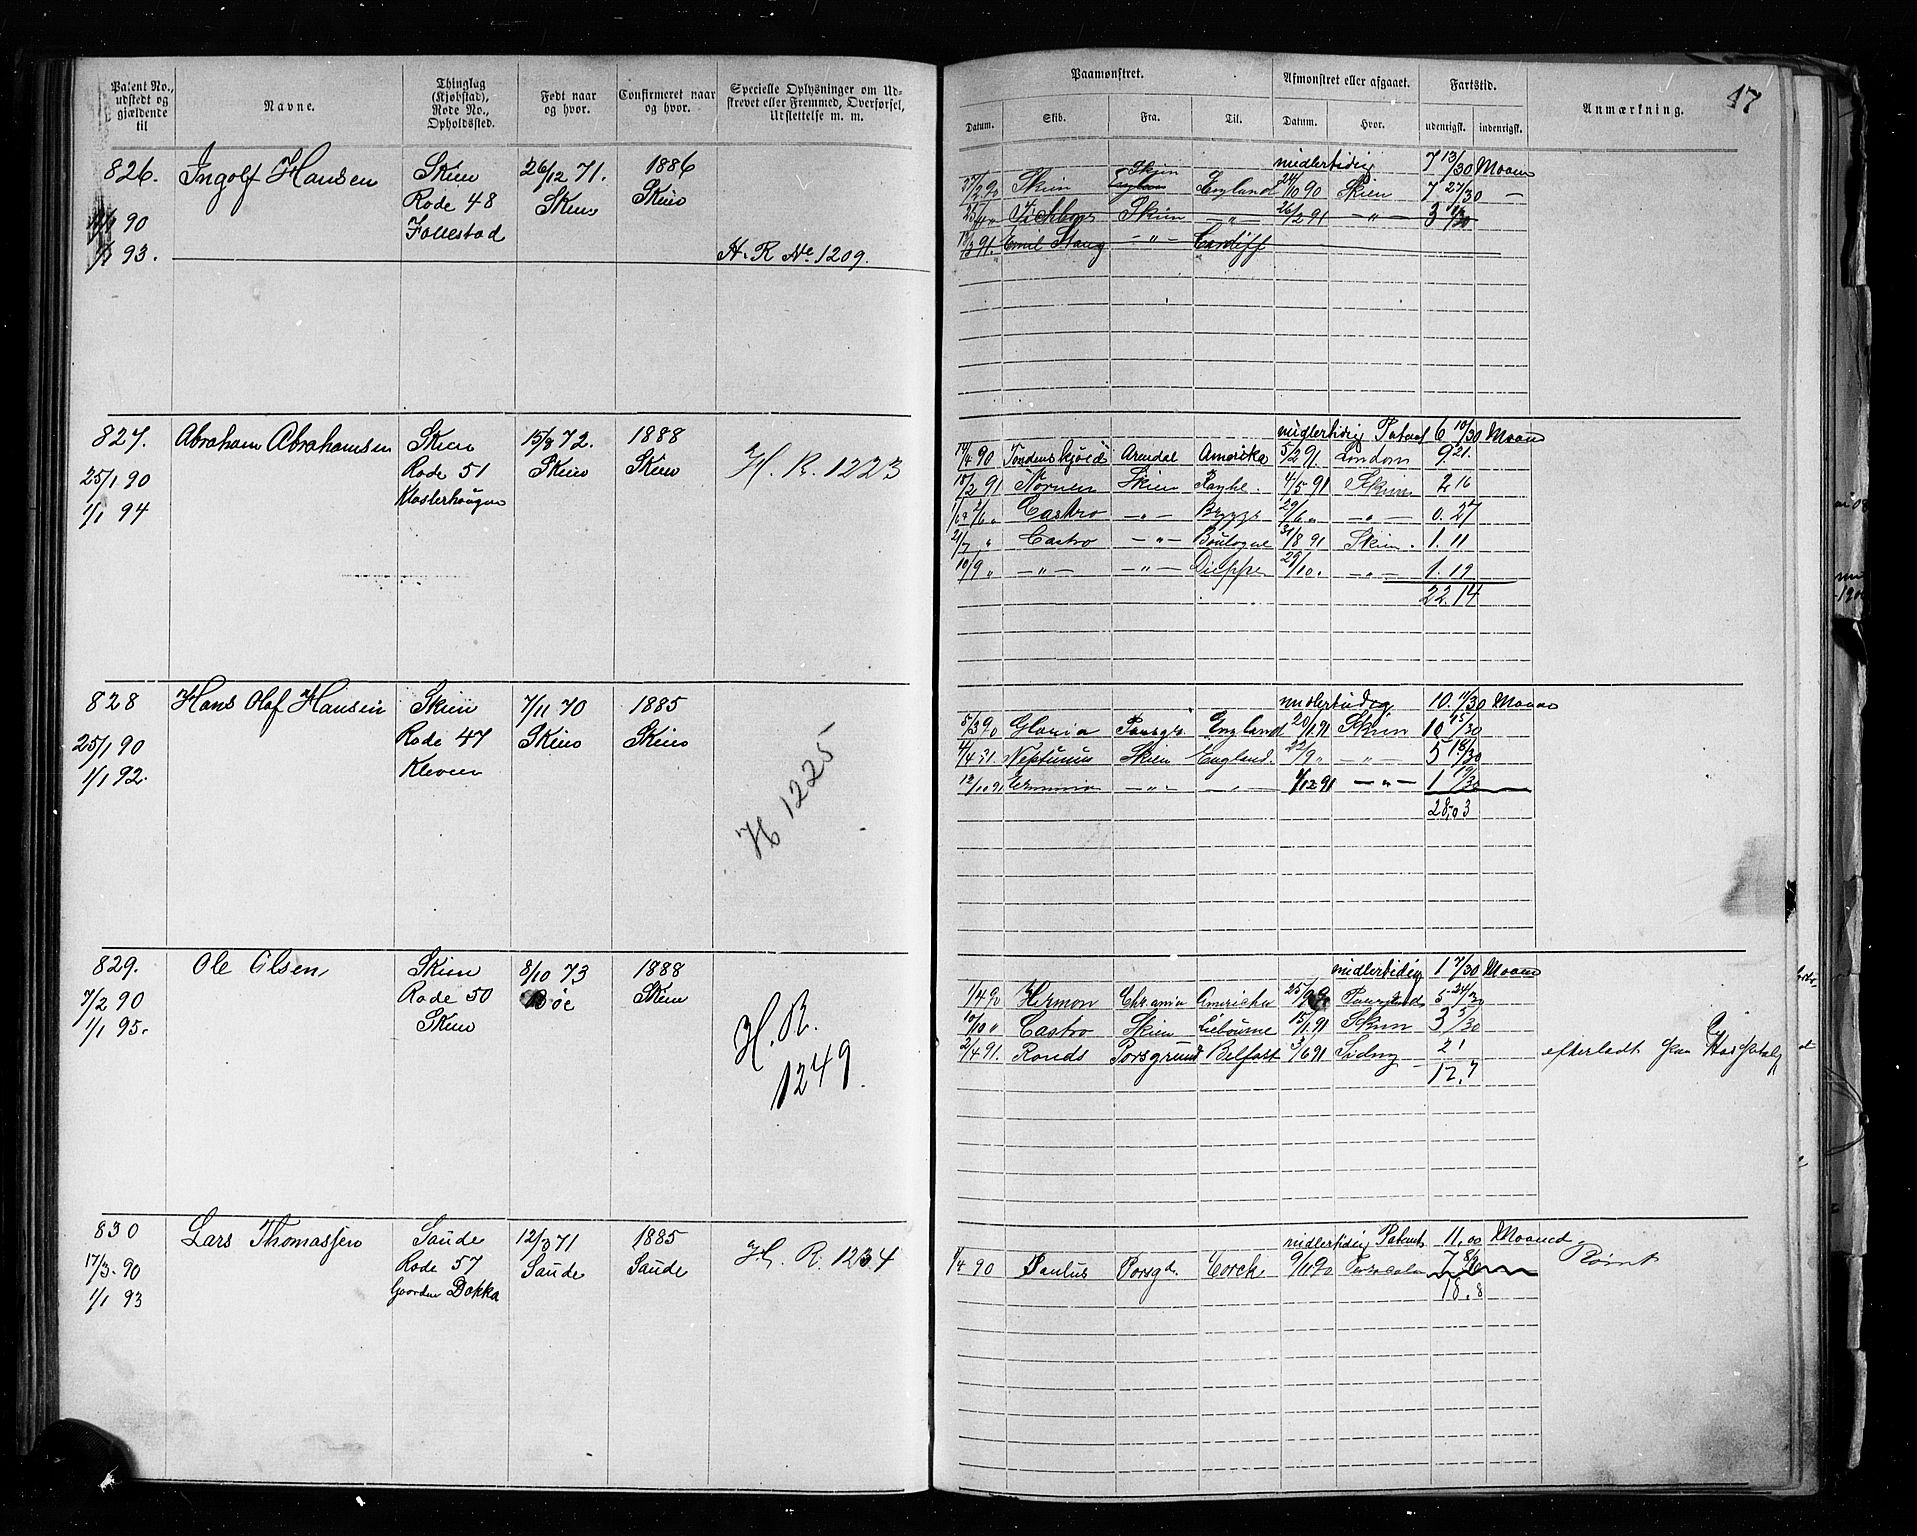 Patent No., udstedt og gjældende til
Navne.
Thinglag (Kjøbstad), Rode No., Opholdssted.
Født naar og hvor.
Confirmeret naar og hvor.
Specielle Oplysninger om Udskrevet eller Fremmed, Overførsel, Udslettelse m. m.
Paamønstret.
Afmønstret eller afgaaet.
Fartstid.
Anmærkning.
17
Datum.
Skib.
Fra.
Til.
Datum.
Hvor.
udenrigsk.
indenrigsk.
826. Ingolf Hansen Skien 26/12 71. 1886
Rode 48 Skien Skien
90 Follestad
1/1 93. H. R No 1209.
midlertidig 7 13/30 Maaned
Skien
Skien England 24/10 90 Skien 7 27/30 —
Skien — „ — 26/2 91 — „ — 3
Emil Stang — „ — Cardiff
827. Abraham Abrahamsen Skien 15/8 72. 1888
25/1 90 Rode 51 Skien Skien H. R. 1223
1/1 94 Klosterhougen
midlertidig Patent 6 10/30 Maaned
14/4 90 Tordenskjold Arendal Amerika 5/2 91. London 9 21.
18/2 91 Nornen Skien 4/5 91 Skien 2 16
Castro — „ — 29/6 „ — „ — 0. 27
21/7 „ Castro — „ — Boulogne 31/8 91 Skien. 1. 11
10/9 „ — „ — — „ — Dieppe 29/10. — „ — 1. 19
22. 14
828 Hans Olaf Hansen Skien 7/11 70 1885
25/1 90 Rode 47 Skien Skien
1/1 92. Kleven
H 1225
midlertidig 10. 11/30 Maaned
5/3 90 Gloria Porsgr. England 20/1 91 Skien 10 15/30
4/4 91. Neptunus Skien England. 22/9 „ — „ — 5 18/30
12/10 91 Ermina — „ — — „ — 1/12 91 — „ — 1 19/30
28,03
829. Ole Olsen Skien 8/10 73 1888
7/2 90 Rode 50 Böe Skien
1/1 95. Skien
H. R.
1249
midlertidig 1 7/30 Maaned
1/4 90 Hermon Chr.ania Amerika 5 24/30
10/10 „ Castro Skien Liebourne 15/1 91 Skien 3 5/30
2/4 91. Ronds Porsgrund Belfast 3/6 91 Sidney 2 1 efterladt paa Hospital
12. 7
830 Lars Thomassen Saude 12/3 71 1885
17/3. 90 Rode 57 Saude Saude H. R. 1234
1/1 93 Gaarden Dokka
midlertidig Patent 11,00 Maaned
1/4 90 Paulus Porsgd. Corck 9/11 90 7 8/30 Rømt
18. 8